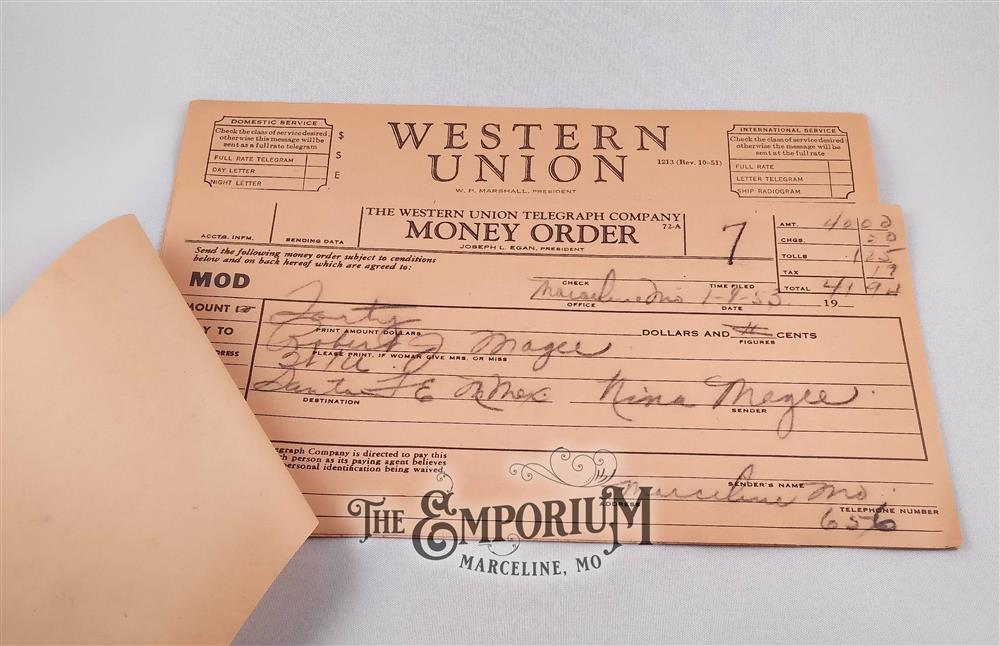 DOMESTIC SERVICE
Check the class of service desired;
otherwise this message will be
sent as a full rate telegram
FULL RATE TELEGRAM
DAY LETTER
NIGHT LETTER
$
S
E
WESTERN
UNION
1213 (Rev. 10-51)
W. P. MARSHALL, PRESIDENT
INTERNATIONAL SERVICE
Check the class of service desired;
otherwise the message will be
sent at the full rate
FULL RATE
LETTER TELEGRAM
SHIP RADIOGRAM
ACCTG. INFM.
SENDING DATA
THE WESTERN UNION TELEGRAPH COMPANY
MONEY ORDER
72-A
JOSEPH L. EGAN, PRESIDENT
7
AMT. 40 00
CHGS. 50
TOLLS 1 25
TAX 19
TOTAL 41 94
Send the following money order subject to conditions
below and on back hereof which are agreed to:
MOD
CHECK
TIME FILED
Marceline Mo 1-9-53
OFFICE
DATE
19
MOUNT
Forty
PRINT AMOUNT DOLLARS
DOLLARS AND
CENTS
FIGURES
Y TO
Robert J Magee
PLEASE PRINT. IF WOMAN GIVE MRS. OR MISS
DRESS
Santa FE N Mex. Nina Magee.
DESTINATION
SENDER
graph Company is directed to pay this
ch person as its paying agent believes
personal identification being waived.
SENDER'S NAME
Marceline Mo.
ADDRESS
TELEPHONE NUMBER
656
THE EMPORIUM
MARCELINE, MO